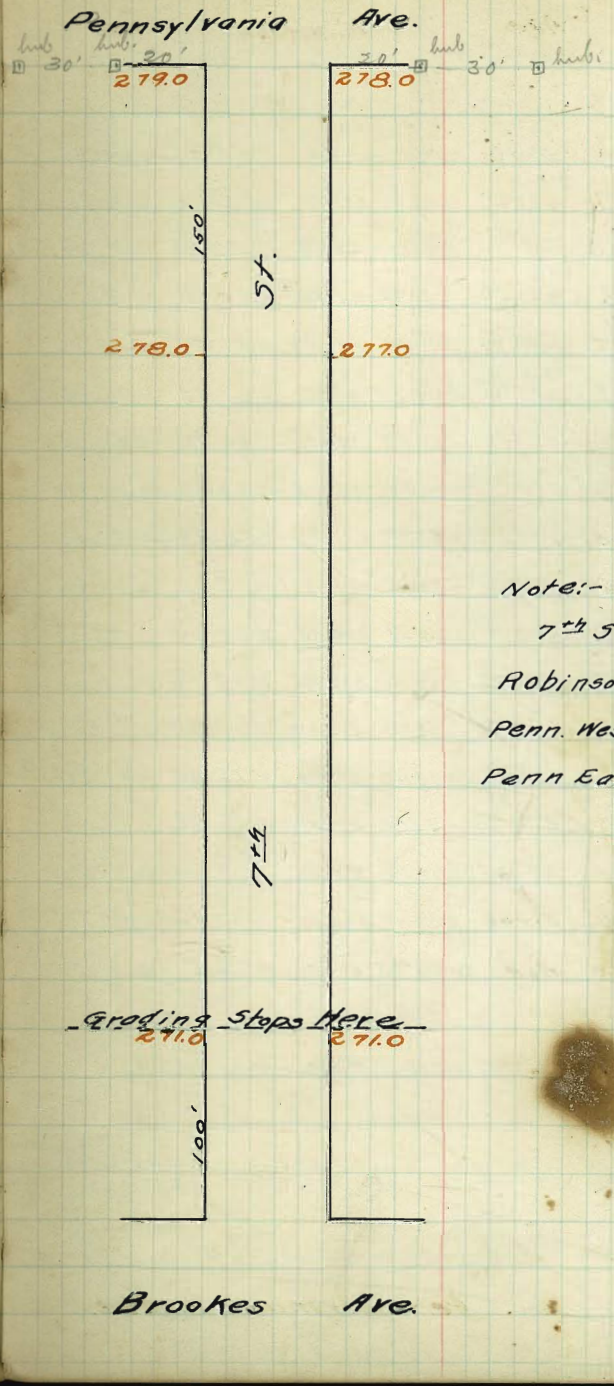 Pennsylvania Ave.
hub 30' hub. 20' 20' hub 30' hub.
279.0 278.0
150'
St.
278.0 277.0
Note:-
7th S
Robinso
Penn. Wes
Penn Ea
7th
Grading Stops Here
271.0 271.0
100'
Brookes Ave.